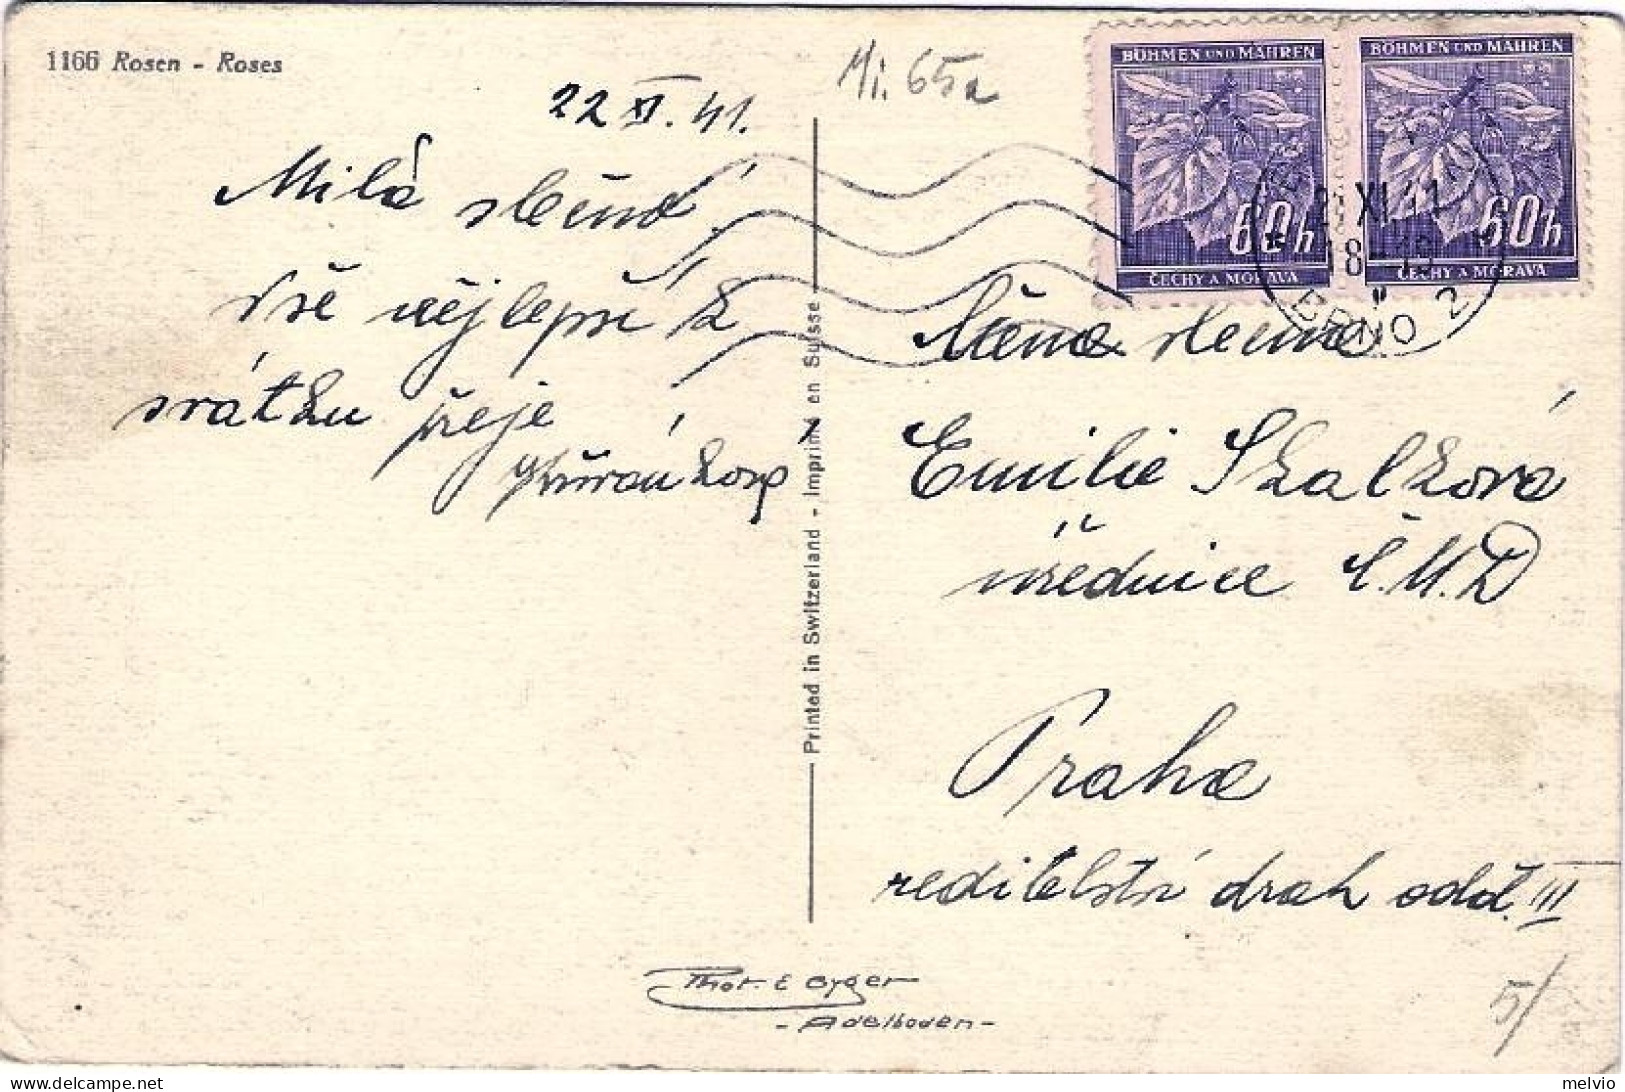 1166 Rosen - Roses
22 XI. 41.
Milá slečno!
Vše nejlepší k
svátku přeje
Mi. 65a
BÖHMEN UND MÄHREN
60h
ČECHY A MORAVA
BÖHMEN UND MÄHREN
60h
ČECHY A MORAVA
XI. 41
18
BRNO 2
Printed in Switzerland - Imprimé en Suisse
slečna
Emilie Skalková
úřednice Č.M.D
Praha
ředitelství drah odd. III
Phot. E Gyger
- Adelboden -
5/
melvio